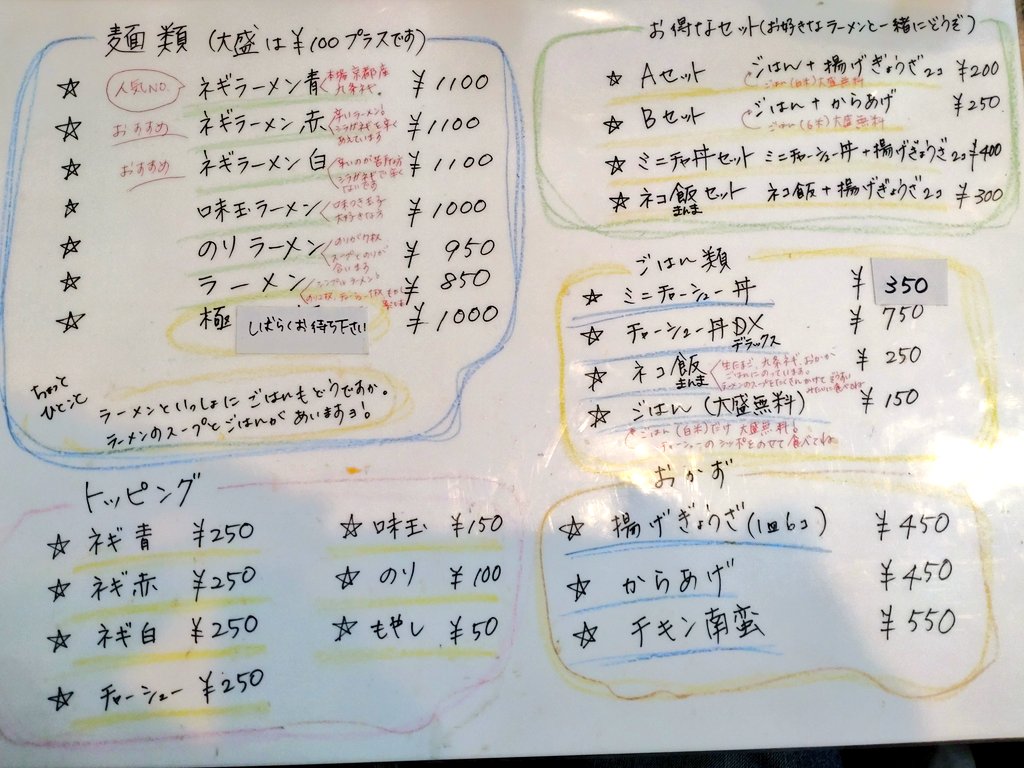 麺類 (大盛は¥100プラスです)
☆ 人気NO. ネギラーメン青 本場京都産 九条ネギ。 ¥1100
☆ おすすめ ネギラーメン赤 辛いラーメン! シラガネギを辛く あえています ¥1100
☆ おすすめ ネギラーメン白 辛いのが苦手な方 シラガネギで辛く ないです ¥1100
☆ 味玉ラーメン 味つき玉子 大好きな方 ¥1000
☆ のりラーメン のりが7枚 スープとのりが 合います ¥950
☆ ラーメン シンプルラーメン! ¥850
☆ 極 しばらくお待ち下さい ¥1000
ちょっと
ひとこと
ラーメンといっしょに ごはんもどうですか。
ラーメンのスープとごはんが あいますョ!
トッピング
☆ ネギ青 ¥250
☆ ネギ赤 ¥250
☆ ネギ白 ¥250
☆ チャーシュー ¥250
☆ 味玉 ¥150
☆ のり ¥100
☆ もやし ¥50
お得なセット(お好きなラーメンと一緒にどうぞ)
☆ Aセット ごはん+揚げぎょうざ2コ ¥200
ごはん(白米)大盛無料
☆ Bセット ごはん+からあげ ¥250
ごはん(白米)大盛無料
☆ ミニチャ丼セット ミニチャーシュー丼+揚げぎょうざ2コ ¥400
☆ ネコ飯セット ネコ飯+揚げぎょうざ2コ ¥300
まんま
ごはん類
☆ ミニチャーシュー丼 ¥350
☆ チャーシュー丼DX ¥750
デラックス
☆ ネコ飯 ¥250
まんま
生たまご、九条ネギ、おかか
ごはんにのっています。
ラーメンのスープをたくさんかけて
☆ ごはん(大盛無料) ¥150
*ごはん(白米)だけ大盛無料!
チャーシューのシッポをのせて食べてね
おかず
☆ 揚げぎょうざ(1皿6コ) ¥450
☆ からあげ ¥450
☆ チキン南蛮 ¥550